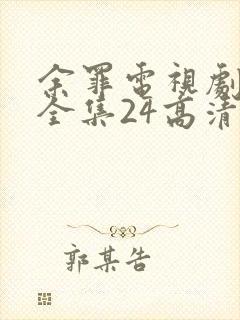 余罪電視劇
全集24高清
郭某告